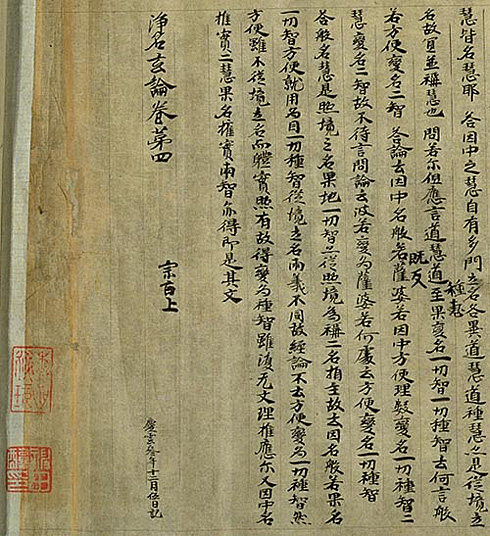 慧皆名慧耶 答因中之慧自有多門立名各異道慧道種慧之是從境立
名故且並稱慧也 問若尔但應言道慧道種慧至果變名一切智一切種智云何言般
若方便變名二智 答論云因中名般若薩婆若因中方便理數變名一切種智二
既反
慧變名二智故不待言問論云波若變為薩婆若何處云方便變名一切種智
答般名慧是照境之名果地一切智亦從照境為稱二名相主故云因名般若果名
一切智方便就用為目一切種智從境立名兩義不同故經論不云方便變為一切種智然
方便雖不從境立名而體實照有故得變為種智雖復无文理推應尔又因中名
權實二慧果名權實兩智亦得即是其文
淨名玄論卷第四
宗百上
慶雲參年十二月伍日記